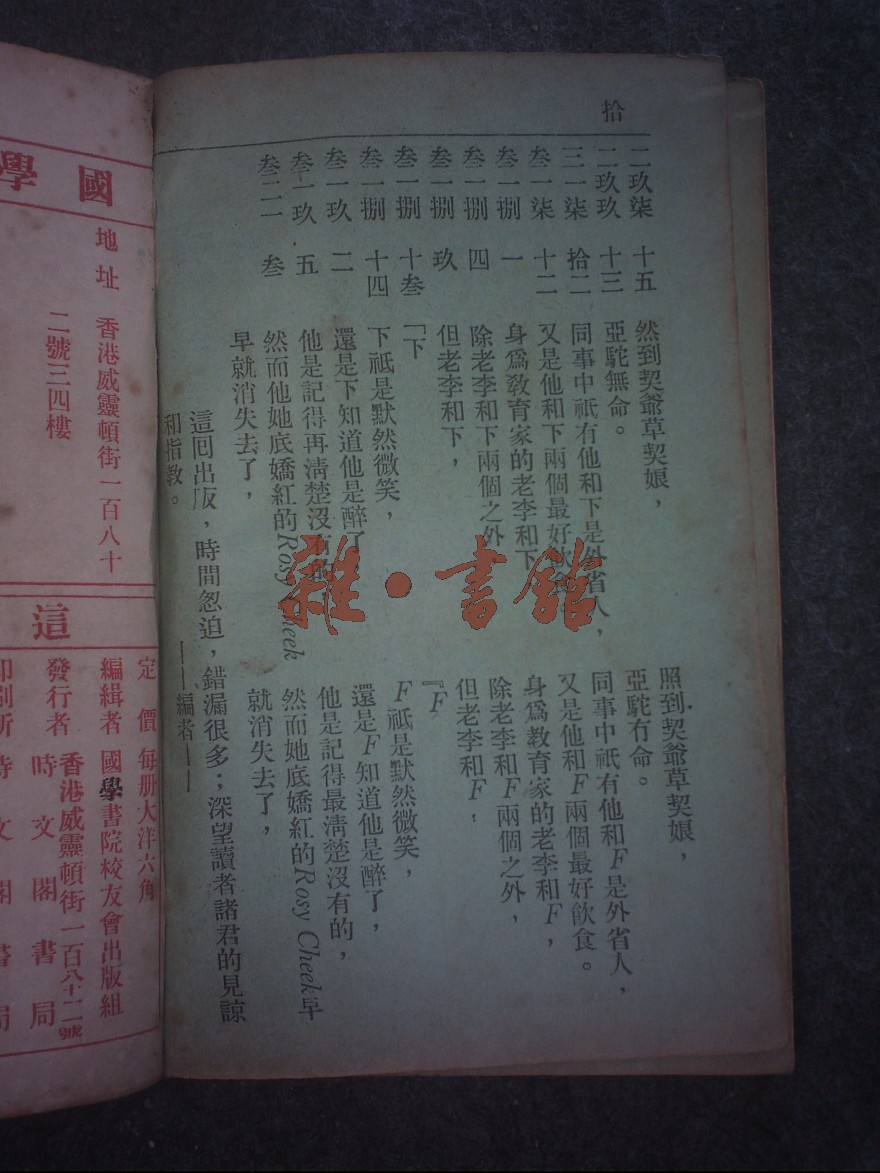 拾
二玖柒　十五　然到契爺草契娘，　照到契爺草契娘，
二玖玖　十三　亞駝無命。　亞駝冇命。
三一柒　拾二　同事中祇有他和下是外省人，　同事中祇有他和F是外省人，
叁一柒　十二　又是他和下兩個最好飲食　又是他和F兩個最好飲食。
叁一捌　一　身爲敎育家的老李和下　身爲敎育家的老李和F，
叁一捌　四　除老李和下兩個之外　除老李和F兩個之外，
叁一捌　玖　但老李和下，　但老李和F，
叁一捌　十叁　「下　『F
叁一捌　十四　下祇是默然微笑，　F祇是默然微笑，
叁一玖　二　還是下知道他是醉了　還是F知道他是醉了，
叁一玖　五　他是記得再淸楚沒有的　他是記得最淸楚沒有的，
叁二一　叁　然而他她底嬌紅的Rosy Cheek　然而她底嬌紅的Rosy Cheek早
早就消失去了，　就消失去了，
這囘出版，時間怱迫，錯漏很多；深望讀者諸君的見諒
和指教。
——編者——
國學
地址　香港威靈頓街一百八十
二號三四樓
這
定價　每册大洋六角
編輯者　國學書院校友會出版組
發行者　香港威靈頓街一百八十二號
時文閣書局
印刷所　時文閣書局
雜·書館